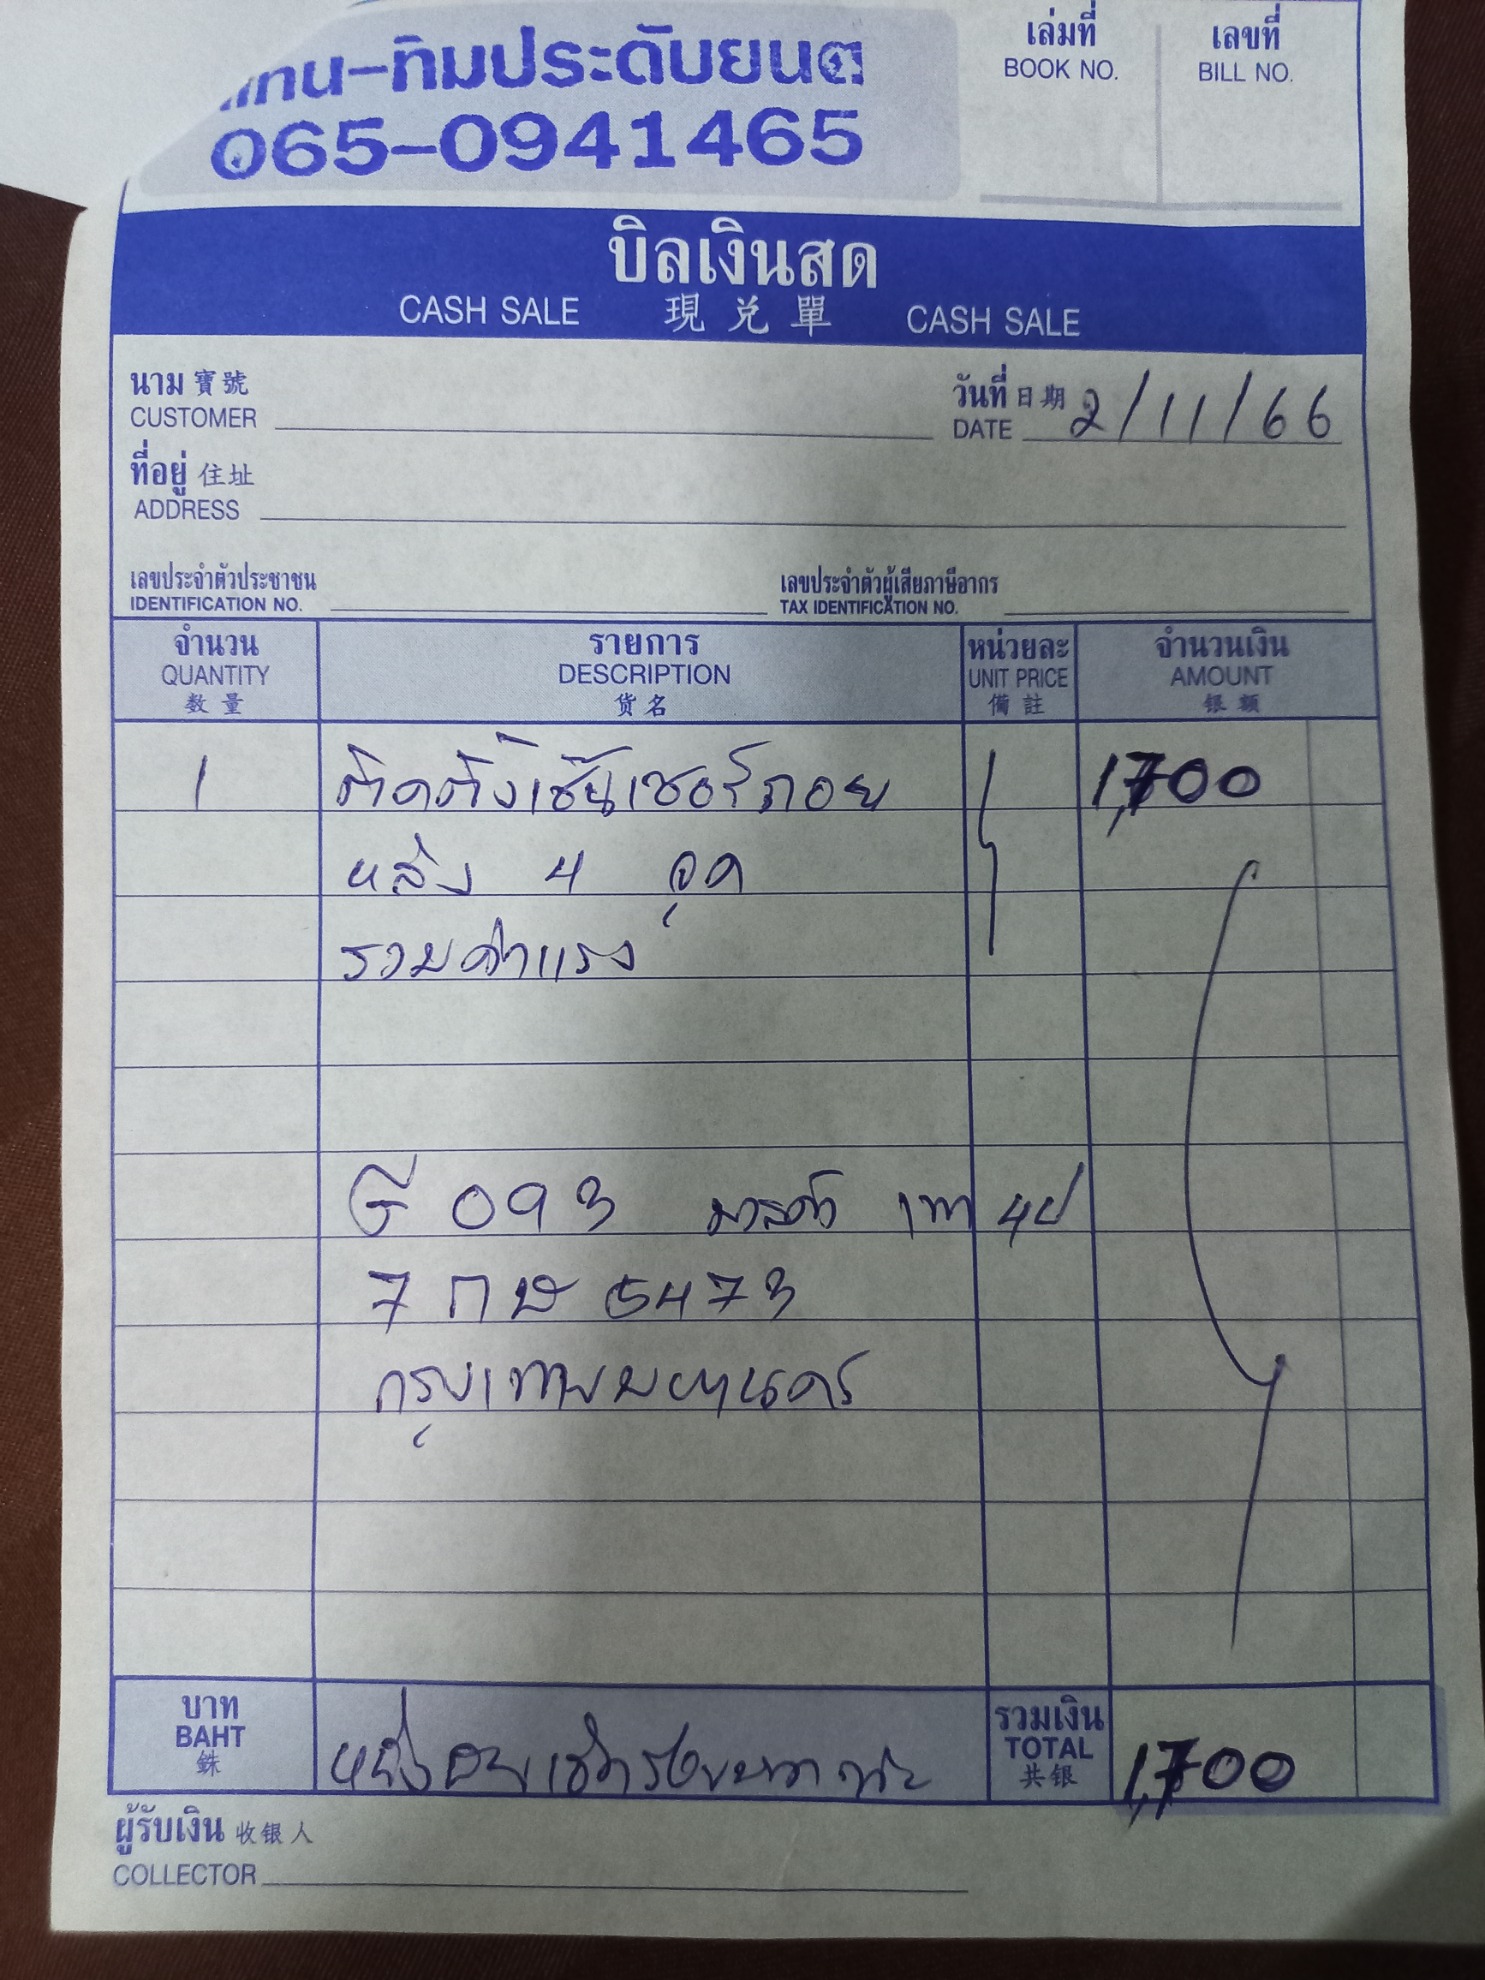 ทน-ทิมประดับยนต
065-0941465
เล่มที่
BOOK NO.
เลขที่
BILL NO.
บิลเงินสด
CASH SALE 現兌單 CASH SALE
นาม 寶號
CUSTOMER
วันที่ 日期
DATE 2/11/66
ที่อยู่ 住址
ADDRESS
เลขประจำตัวประชาชน
IDENTIFICATION NO.
เลขประจำตัวผู้เสียภาษีอากร
TAX IDENTIFICATION NO.
จำนวน รายการ หน่วยละ จำนวนเงิน
QUANTITY DESCRIPTION UNIT PRICE AMOUNT
数量 货名 備註 银额
1 ติดตั้งเซ็นเซอร์ถอย 1,700
หลัง 4 จุด
รวมค่าแรง
093 มาสด้า เทา 4ป
7 กษ 5473
กรุงเทพมหานคร
บาท
BAHT
銖
รวมเงิน
TOTAL
共银
1,700
ผู้รับเงิน 收银人
COLLECTOR